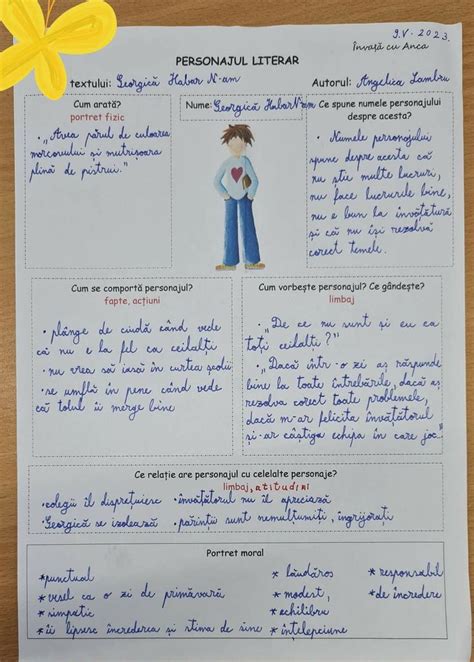 9.V.2023.
Învață cu Anca
PERSONAJUL LITERAR
textului: Georgică Habar N-am
Autorul: Angelica Lambru
Cum arată?
portret fizic
• „Avea părul de culoarea
morcovului și mutrișoara
plină de pistrui."
Nume: Georgică Habar N-am
Ce spune numele personajului
despre acesta?
• Numele personajului
spune despre acesta că
nu știe multe lucruri,
nu face lucrurile bine,
nu e bun la învățătură
și că nu își rezolvă
corect temele.
Cum se comportă personajul?
fapte, acțiuni
• plânge de ciudă când vede
că nu e la fel ca ceilalți
• nu vrea să iasă în curtea școlii
• se umflă în pene când vede
că totul îi merge bine
Cum vorbește personajul? Ce gândește?
limbaj
• „De ce nu sunt și eu ca
toți ceilalți?"
• „Dacă într-o zi aș răspunde
bine la toate întrebările, dacă aș
rezolva corect toate problemele,
dacă m-ar felicita învățătorul
și-ar câștiga echipa în care joc."
Ce relație are personajul cu celelalte personaje?
limbaj, atitudini
• colegii îl disprețuiesc • învățătorul nu îl apreciază
• Georgică se izolează • părinții sunt nemulțumiți, îngrijorați
Portret moral
* punctual * lăudăros * responsabil
* vesel ca o zi de primăvară * modest, * de încredere
* simpatic * echilibru
* îi lipsesc încrederea și stima de sine * înțelepciune